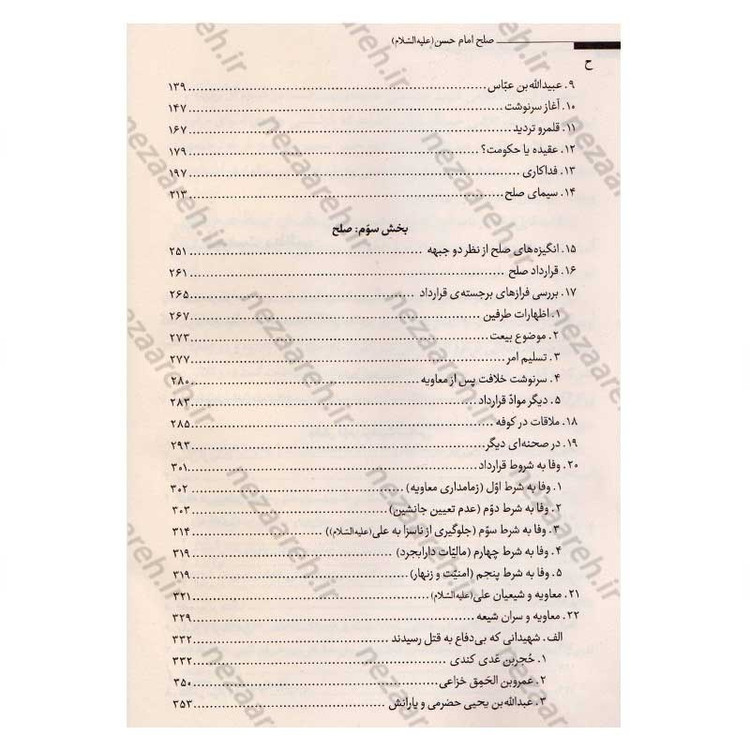 صلح امام حسن (علیه‌السّلام)
ح
۹. عبیدالله بن عبّاس ........ ۱۳۹
۱۰. آغاز سرنوشت ........ ۱۴۷
۱۱. قلمرو تردید ........ ۱۶۷
۱۲. عقیده یا حکومت؟ ........ ۱۷۹
۱۳. فداکاری ........ ۱۹۷
۱۴. سیمای صلح ........ ۲۱۳
بخش سوّم: صلح
۱۵. انگیزه‌های صلح از نظر دو جبهه ........ ۲۵۱
۱۶. قرارداد صلح ........ ۲۶۱
۱۷. بررسی فرازهای برجسته‌ی قرارداد ........ ۲۶۵
۱. اظهارات طرفین ........ ۲۶۷
۲. موضوع بیعت ........ ۲۷۳
۳. تسلیم امر ........ ۲۷۷
۴. سرنوشت خلافت پس از معاویه ........ ۲۸۰
۵. دیگر موادّ قرارداد ........ ۲۸۳
۱۸. ملاقات در کوفه ........ ۲۸۵
۱۹. در صحنه‌ای دیگر ........ ۲۹۳
۲۰. وفا به شروط قرارداد ........ ۳۰۱
۱. وفا به شرط اوّل (زمامداری معاویه) ........ ۳۰۲
۲. وفا به شرط دوّم (عدم تعیین جانشین) ........ ۳۰۳
۳. وفا به شرط سوّم (جلوگیری از ناسزا به علی (علیه‌السّلام)) ........ ۳۱۴
۴. وفا به شرط چهارم (مالیّات دارابجرد) ........ ۳۱۹
۵. وفا به شرط پنجم (امنیّت و زنهار) ........ ۳۱۹
۲۱. معاویه و شیعیان علی (علیه‌السّلام) ........ ۳۲۱
۲۲. معاویه و سران شیعه ........ ۳۲۹
الف. شهیدانی که بی‌دفاع به قتل رسیدند ........ ۳۳۲
۱. حُجربن عَدی کندی ........ ۳۳۲
۲. عمروبن الحَمِق خزاعی ........ ۳۵۰
۳. عبدالله بن یحیی حضرمی و یارانش ........ ۳۵۳
nezaareh.ir